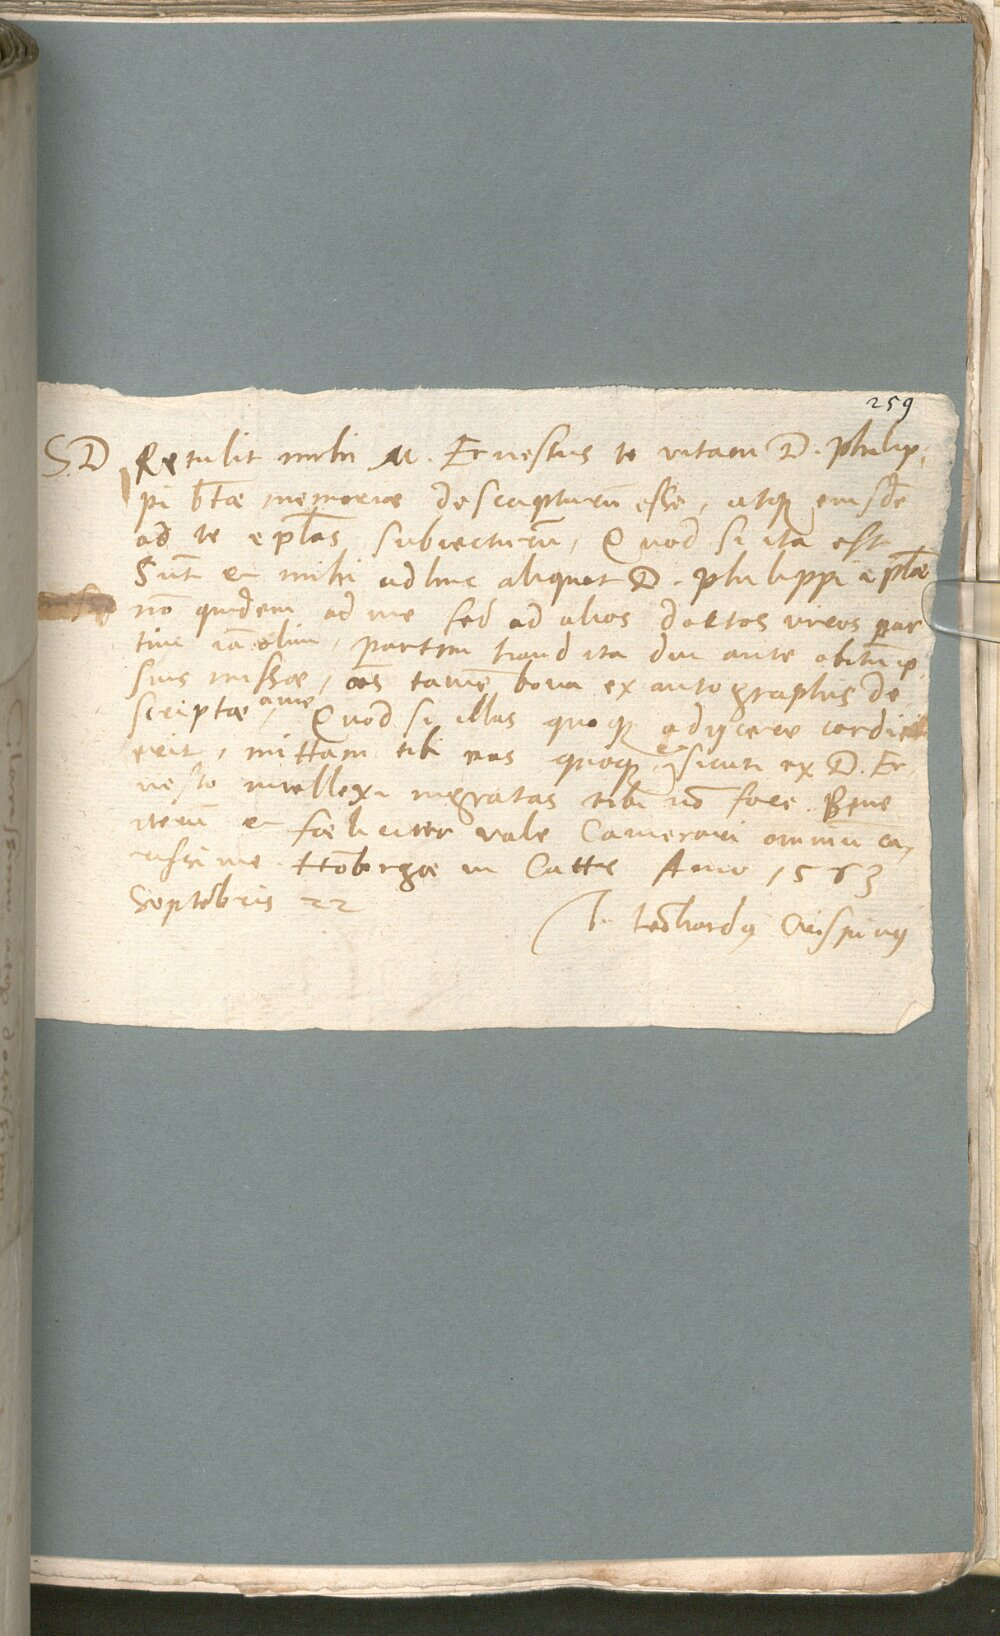 259
S.D Retulit mihi M. Ernestus te vitam D. Philip-
pi btae memoriae descripturū esse, atq; eiusdē
ad te eplas subiecturū, Quod si ita est
Sūt et mihi adhuc aliquot D. Philippi eplae
nō quidem ad me sed ad alios doctos viros par
tim iā olim, partim haud ita diu ante obitū ip
sius missae, oēs tamē bona ex autographis de
scriptae a me Quod si illas quoq; adijcere cordi
erit, mittam tibi eas quoq; sicuti ex D. Er-
nesto intellexi ingratas tibi nō fore. Bene
iterū et foeliciter vale Camerari omniū ca-
rissime. Hōbergae in Cattis Anno 1563
Septēbris 22
T. Leōhardg Crispinus